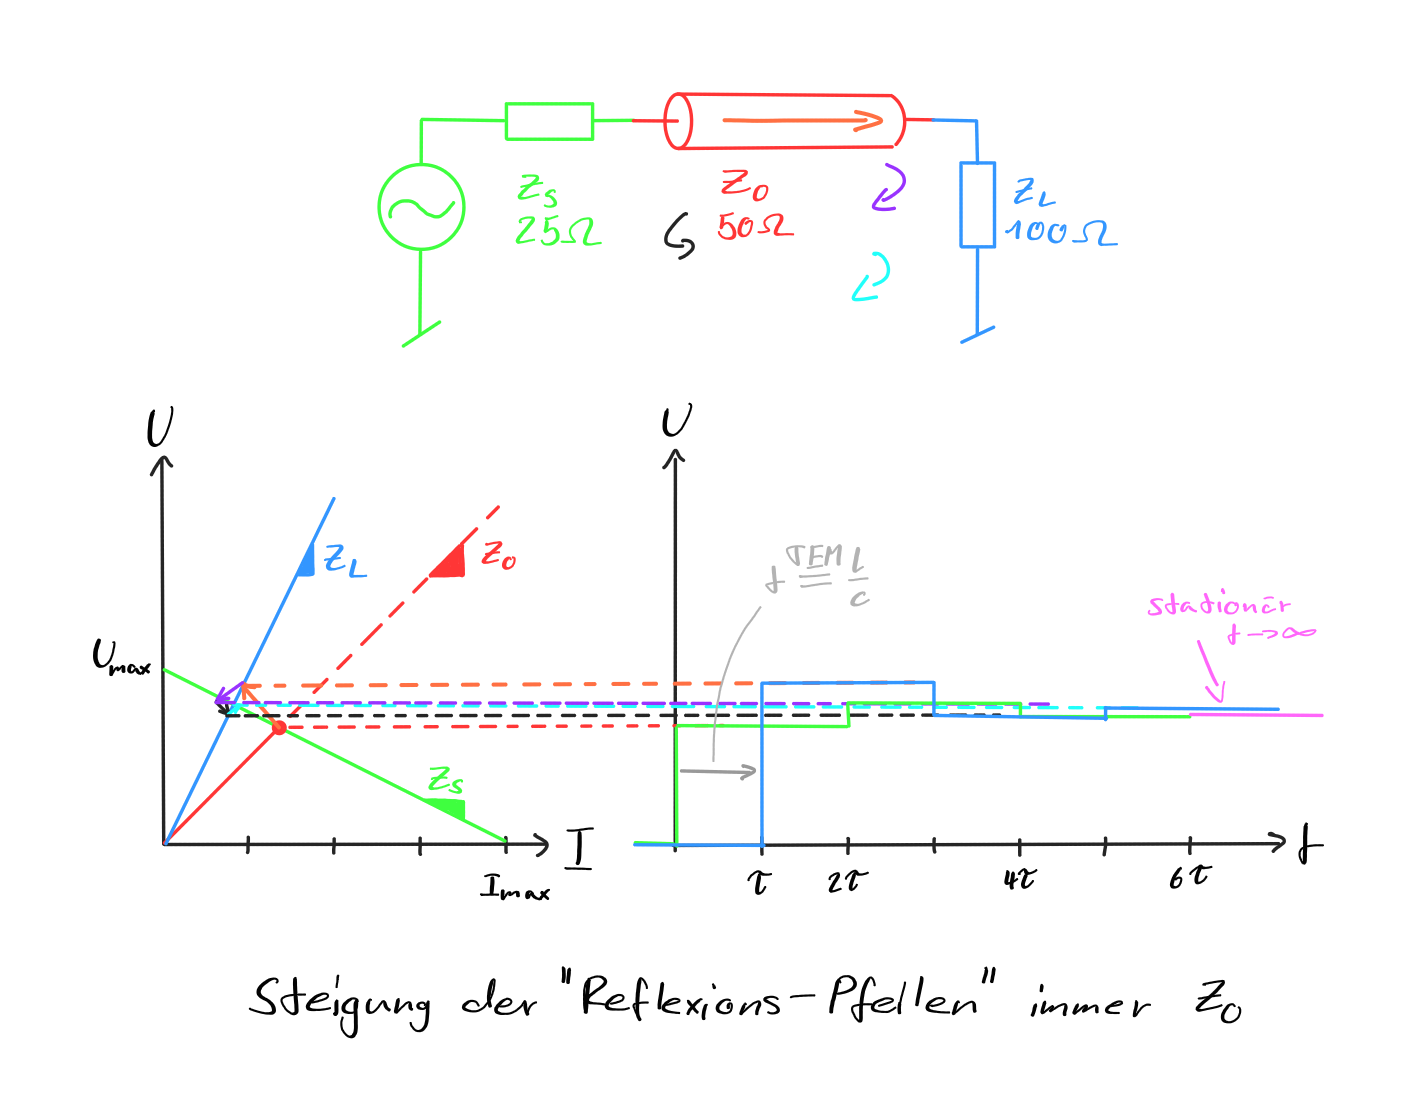 Zs
25Ω
Z0
50Ω
ZL
100Ω
U
ZL
Z0
Umax
Zs
I
Imax
U
t TEM l/c
stationär
t→∞
τ
2τ
4τ
6τ
t
Steigung der "Reflexions-Pfeilen" immer Z0